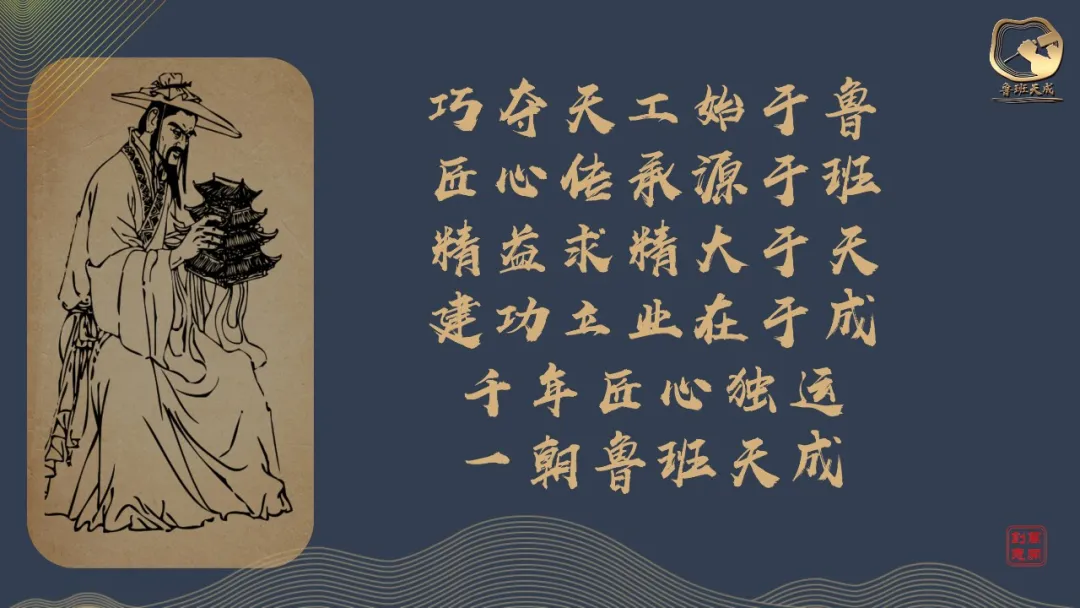 鲁班天成
巧夺天工始于鲁
匠心传承源于班
精益求精大于天
建功立业在于成
千年匠心独运
一朝鲁班天成